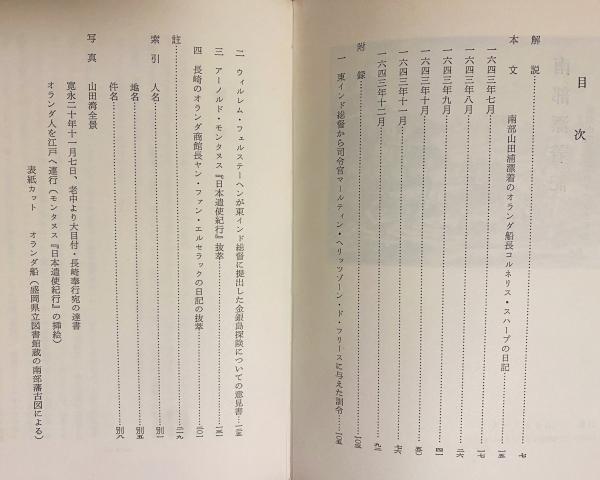 目次
解説……七
本文　南部山田浦漂着のオランダ船長コルネリス・スハープの日記……一五
一六四三年七月……一七
一六四三年八月……二六
一六四三年九月……四一
一六四三年十月……五〇
一六四三年十一月……七六
一六四三年十二月……九二
附録……一〇五
一　東インド総督から司令官マールティン・ヘリッツゾーン・ド・フリースに与えた訓令……一〇五
二　ウィルレム・フェルステーヘンが東インド総督に提出した金銀島探検についての意見書……一二五
三　アーノルド・モンタヌス『日本遣使紀行』抜萃……一三一
四　長崎のオランダ商館長ヤン・ファン・エルセラックの日記の抜萃……二〇一
註……二一九
索引　人名……別一
地名……別五
件名……別八
写真　山田湾全景
寛永二十年十一月七日、老中より大目付・長崎奉行宛の達書
オランダ人を江戸へ連行（モンタヌス『日本遣使紀行』の挿絵）
表紙カット　オランダ船（盛岡県立図書館蔵の南部藩古図による）